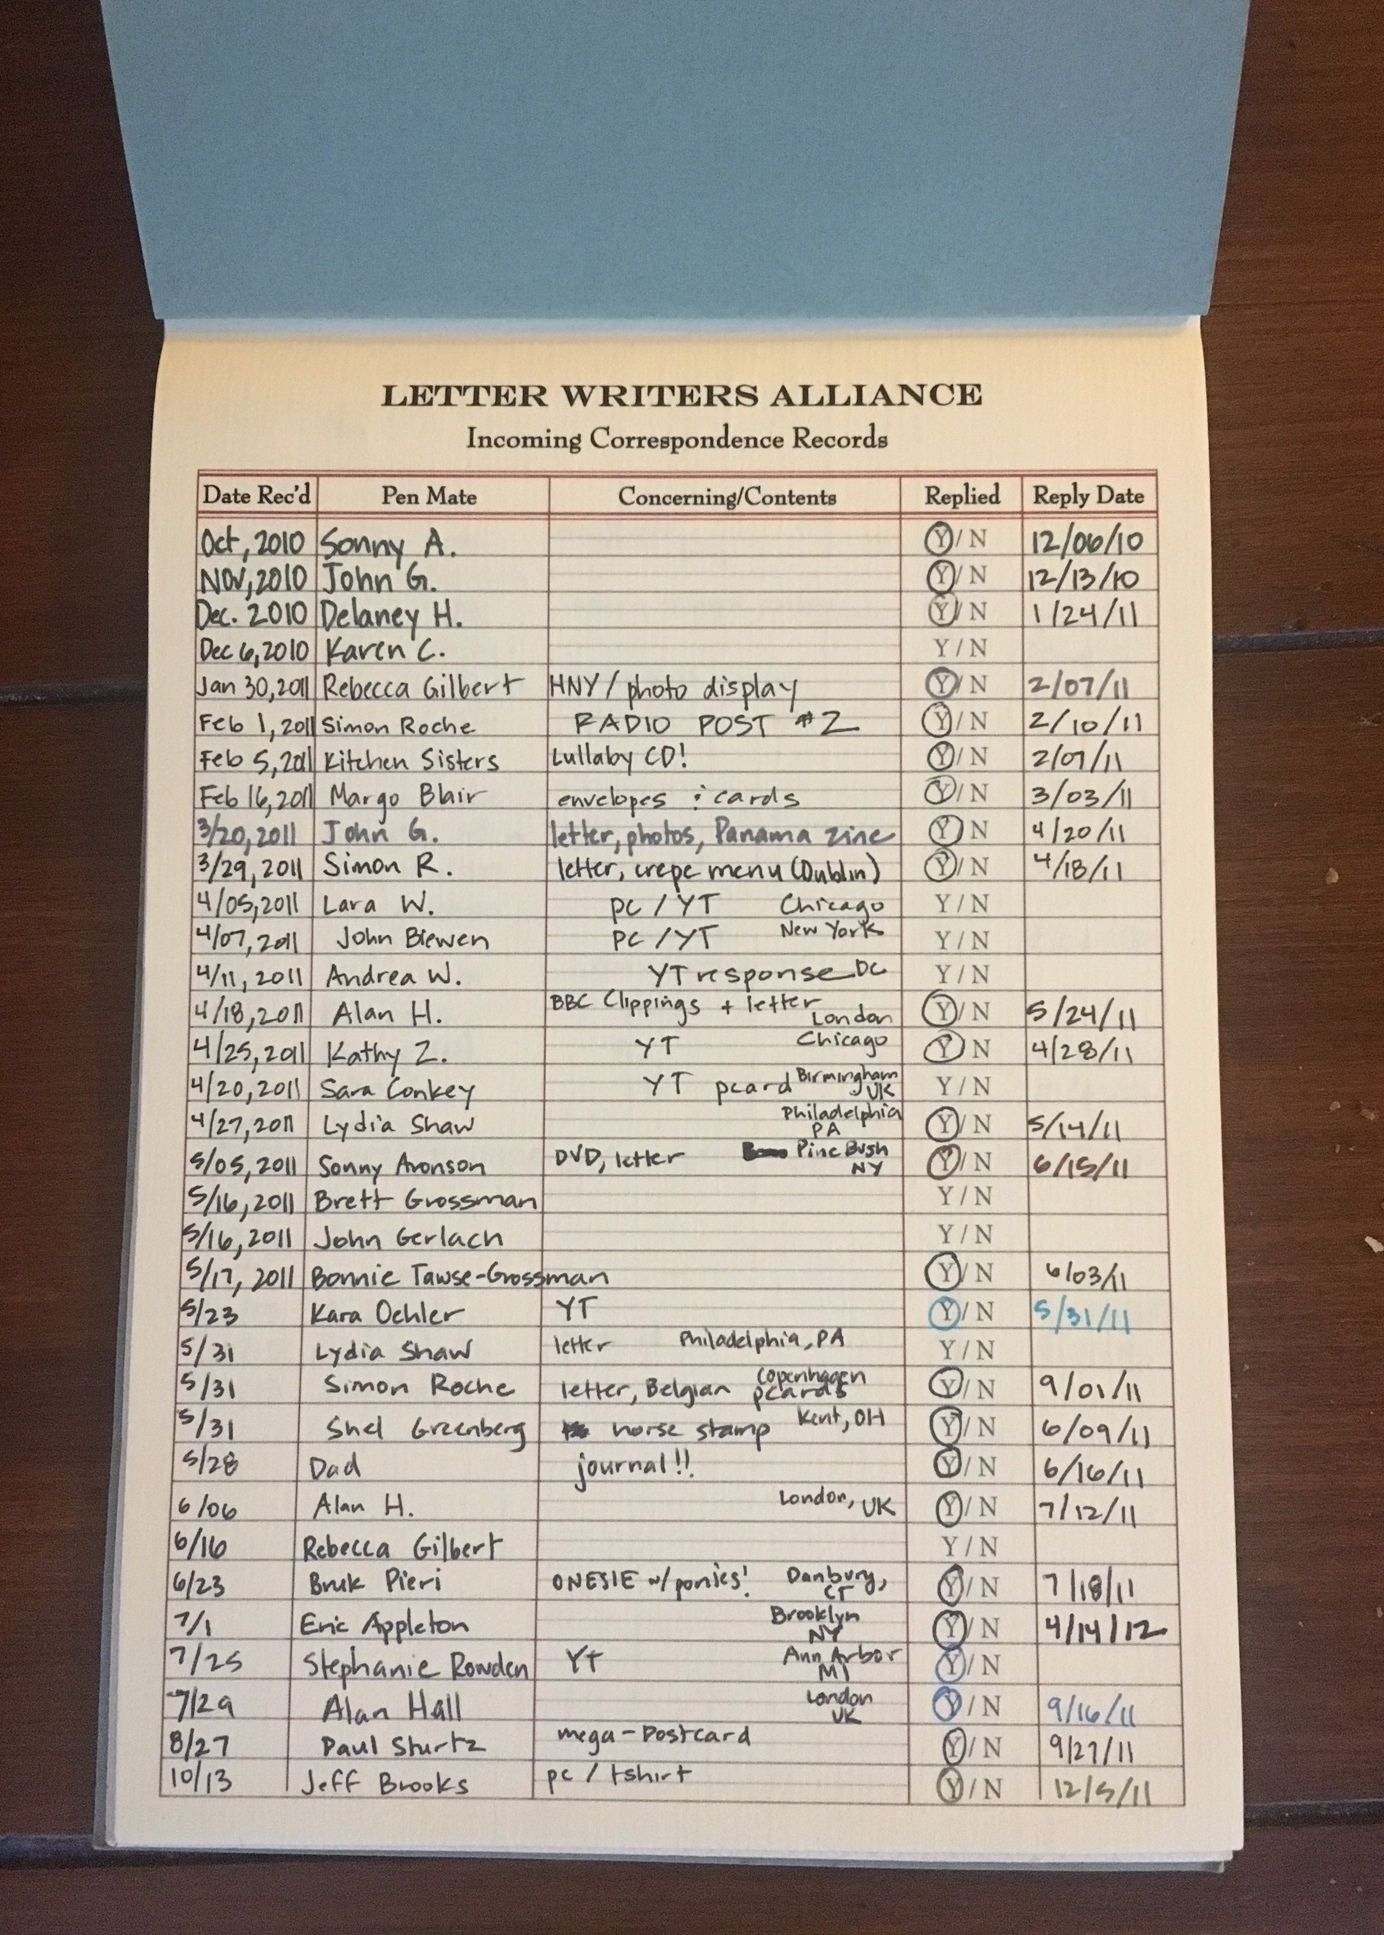 LETTER WRITERS ALLIANCE
Incoming Correspondence Records
Date Rec'd Pen Mate Concerning/Contents Replied Reply Date
Oct, 2010 Sonny A. Y/N 12/06/10
Nov, 2010 John G. Y/N 12/13/10
Dec. 2010 Delaney H. Y/N 1/24/11
Dec 6, 2010 Karen C. Y/N
Jan 30, 2011 Rebecca Gilbert HNY / photo display Y/N 2/07/11
Feb 1, 2011 Simon Roche RADIO POST #2 Y/N 2/10/11
Feb 5, 2011 Kitchen Sisters Lullaby CD! Y/N 2/07/11
Feb 16, 2011 Margo Blair envelopes & cards Y/N 3/03/11
3/20, 2011 John G. letter, photos, Panama zine Y/N 4/20/11
3/29, 2011 Simon R. letter, crepe menu (Dublin) Y/N 4/18/11
4/05, 2011 Lara W. pc / YT Chicago Y/N
4/07, 2011 John Biewen pc / YT New York Y/N
4/11, 2011 Andrea W. YT response DC Y/N
4/18, 2011 Alan H. BBC Clippings + letter London Y/N 5/24/11
4/25, 2011 Kathy Z. YT Chicago Y/N 4/28/11
4/20, 2011 Sara Conkey YT pcard Birmingham UK Y/N
4/27, 2011 Lydia Shaw Philadelphia PA Y/N 5/14/11
5/05, 2011 Sonny Aronson DVD, letter Pine Bush NY Y/N 6/15/11
5/16, 2011 Brett Grossman Y/N
5/16, 2011 John Gerlach Y/N
5/17, 2011 Bonnie Tawse-Grossman Y/N 6/03/11
5/23 Kara Oehler YT Y/N 5/31/11
5/31 Lydia Shaw letter Philadelphia, PA Y/N
5/31 Simon Roche letter, Belgian pcards Copenhagen Y/N 9/01/11
5/31 Shel Greenberg horse stamp Kent, OH Y/N 6/09/11
5/28 Dad journal!! Y/N 6/16/11
6/06 Alan H. London, UK Y/N 7/12/11
6/16 Rebecca Gilbert Y/N
6/23 Bruk Pieri ONESIE w/ponies! Danbury, CT Y/N 7/18/11
7/1 Eric Appleton Brooklyn NY Y/N 4/14/12
7/25 Stephanie Rowden YT Ann Arbor MI Y/N
7/29 Alan Hall London UK Y/N 9/16/11
8/27 Paul Sturtz mega-Postcard Y/N 9/27/11
10/13 Jeff Brooks pc / tshirt Y/N 12/5/11